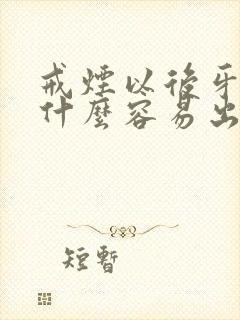 戒煙以後牙
什麼容易出
短暫